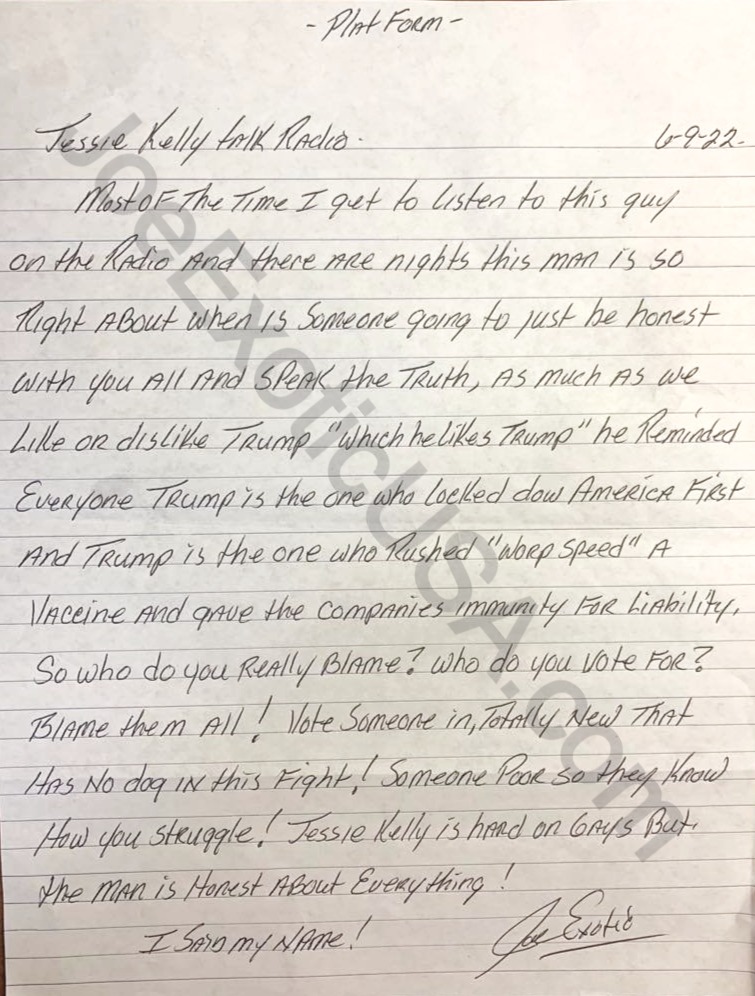 - Platform -
Jessie Kelly talk Radio. 6-9-22.
Most of The Time I get to listen to this guy
on the Radio And there are nights this man is so
Right About when is Someone going to just be honest
with you All And Speak the Truth, As much As we
Like or dislike Trump "which he likes Trump" he Reminded
Everyone Trump is the one who locked dow America First
And Trump is the one who Rushed "Worp Speed" A
Vacceine And gave the Companies immunity For Liability.
So who do you Really Blame? Who do you Vote For?
Blame them All! Vote Someone in, Totally New That
Has No dog in this Fight! Someone Poor so they Know
How you struggle! Jessie Kelly is hard on Gays But.
the man is Honest About Everything!
I Said my Name! Joe Exotic
JoeExoticUSA.com